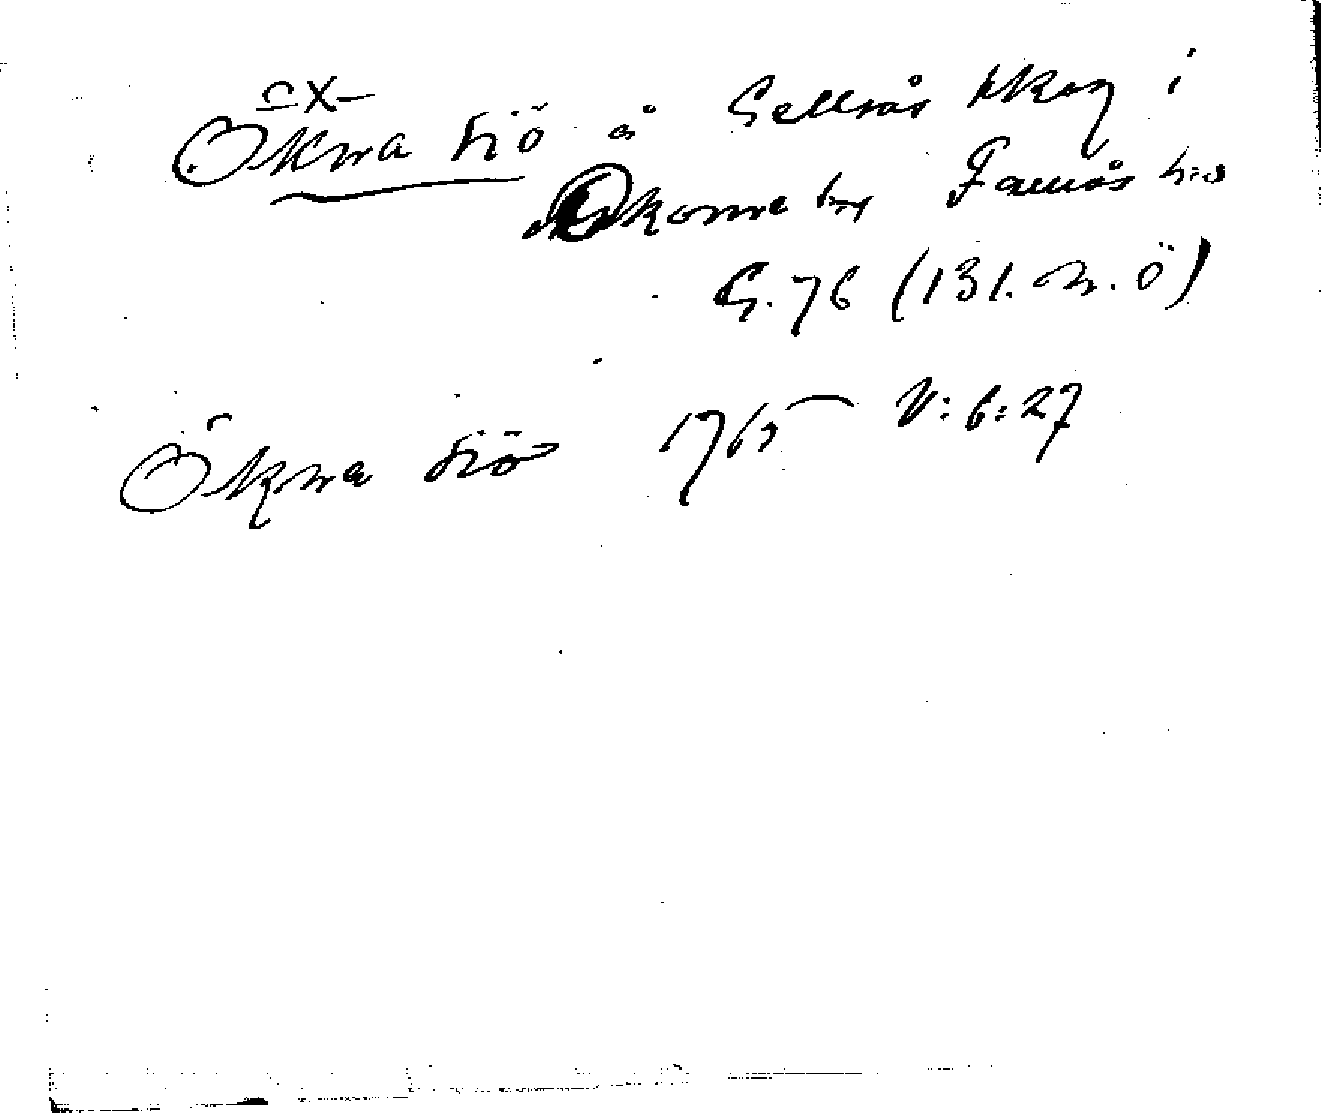 Ökna siö å Gellsås skog i
Okome by Famås hd
G. 76 (131. n. ö)
Ökna siö 1765 V:6:27